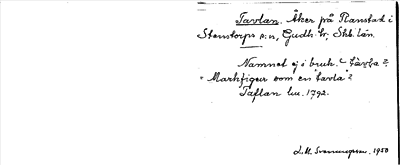 Tavlan. Åker på Ranstad i
Stenstorps sn, Gudh. hr, Skb. län.
Namnet ej i bruk. < tavla =
"Markfigur som en tavla"?
Taflan lm. 1792.
1950